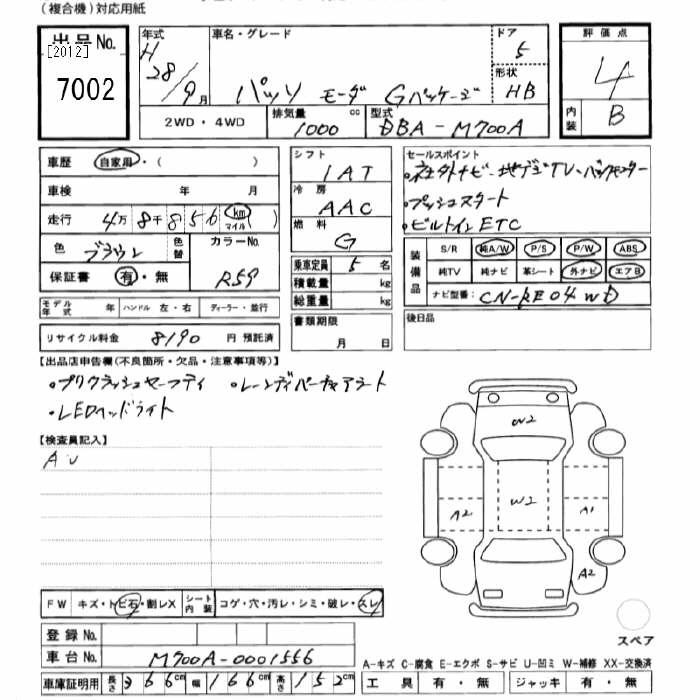 (複合機)対応用紙
出品No.
[2012]
7002
年式
H
28/9月
車名・グレード
パッソ モーダ Gパッケージ
ドア
5
形状
HB
評価点
4
内装
B
2WD・4WD
排気量
1000 cc
型式
DBA-M700A
車歴 自家用・( )
車検 年 月
走行 4万8千856 km マイル
色 ブラウン 色替
カラーNo.
R59
保証書 有・無
モデル年式 年 ハンドル 左・右 ディーラー・並行
リサイクル料金 8190 円 預託済
シフト
IAT
冷房
AAC
燃料
G
乗車定員 5 名
積載量 kg
総重量 kg
書類期限
月 日
セールスポイント
・社外ナビ・地デジTV・バックモニター
・プッシュスタート
・ビルトインETC
装備品
S/R 純A/W P/S P/W ABS
純TV 純ナビ 革シート 外ナビ エアB
ナビ型番: CN-RE04WD
後日品
【出品店申告欄(不良箇所・欠品・注意事項等)】
・プリクラッシュセーフティ ・レーンディパーチャアラート
・LEDヘッドライト
【検査員記入】
AU
W2
W2
A2
A1
A2
スペア
FW キズ・トビ石・割レX シート内装 コゲ・穴・汚レ・シミ・破レ・スレ
登録No.
車台No. M700A-0001556
車庫証明用 長さ 366cm 幅 166cm 高さ 152cm
A-キズ C-腐食 E-エクボ S-サビ U-凹ミ W-補修 XX-交換済
工具 有・無 ジャッキ 有・無